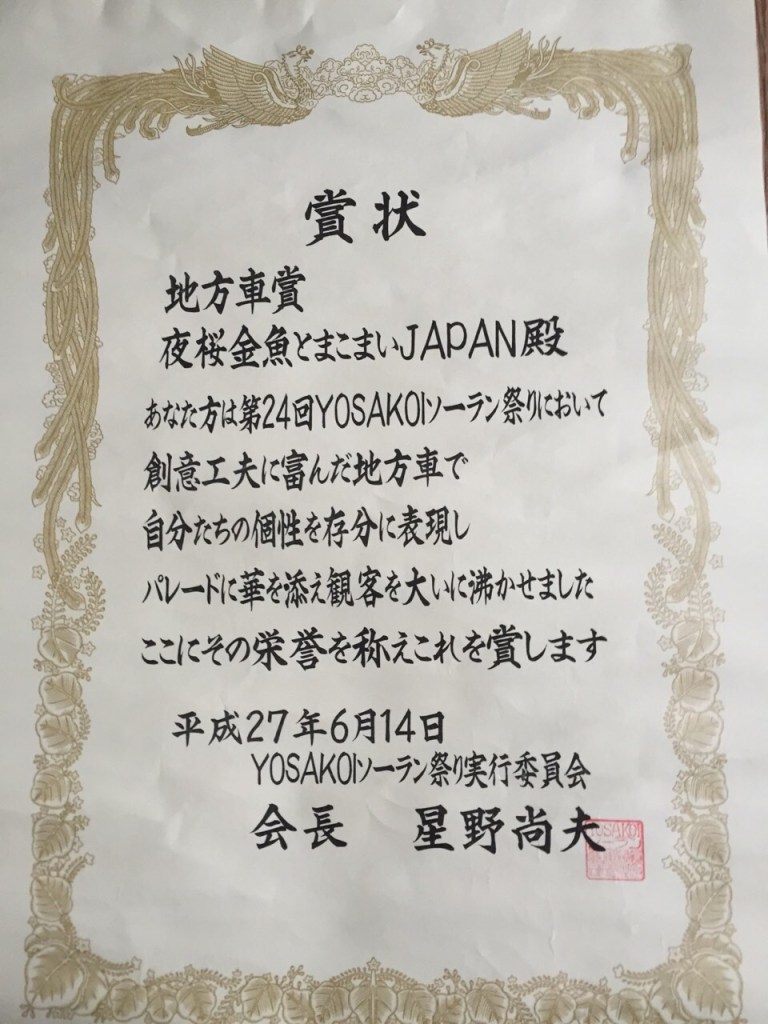 賞状
地方車賞
夜桜金魚とまこまいJAPAN殿
あなた方は第24回YOSAKOIソーラン祭りにおいて
創意工夫に富んだ地方車で
自分たちの個性を存分に表現し
パレードに華を添え観客を大いに沸かせました
ここにその栄誉を称えこれを賞します
平成27年6月14日
YOSAKOIソーラン祭り実行委員会
会長 星野尚夫